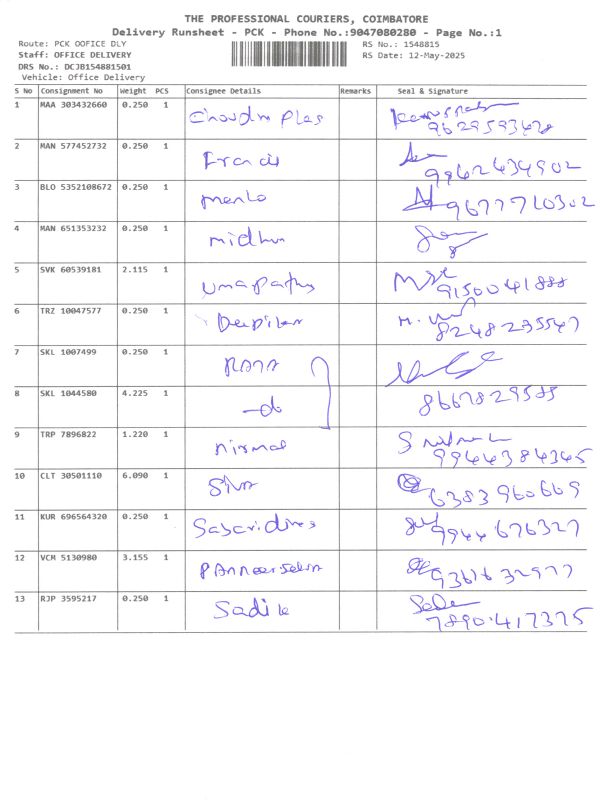 THE PROFESSIONAL COURIERS, COIMBATORE
Delivery Runsheet - PCK - Phone No.:9047080280 - Page No.:1
Route: PCK OOFICE DLY
RS No.: 1548815
Staff: OFFICE DELIVERY
RS Date: 12-May-2025
DRS No.: DCJB154881501
Vehicle: Office Delivery
S No Consignment No Weight PCS Consignee Details Remarks Seal & Signature
1 MAA 303432660 0.250 1
2 MAN 577452732 0.250 1 Francis
9962434902
3 BLO 5352108672 0.250 1
9677710302
4 MAN 651353232 0.250 1 midhun
5 SVK 60539181 2.115 1 Umapathy
9150041888
6 TRZ 10047577 0.250 1
8248235547
7 SKL 1007499 0.250 1
8 SKL 1044580 4.225 1 -do
8667829585
9 TRP 7896822 1.220 1 nirmal
9944384345
10 CLT 30501110 6.090 1 Siva
6383960669
11 KUR 696564320 0.250 1
9944676327
12 VCM 5130980 3.155 1
9361632977
13 RJP 3595217 0.250 1 Sadik
7890417375